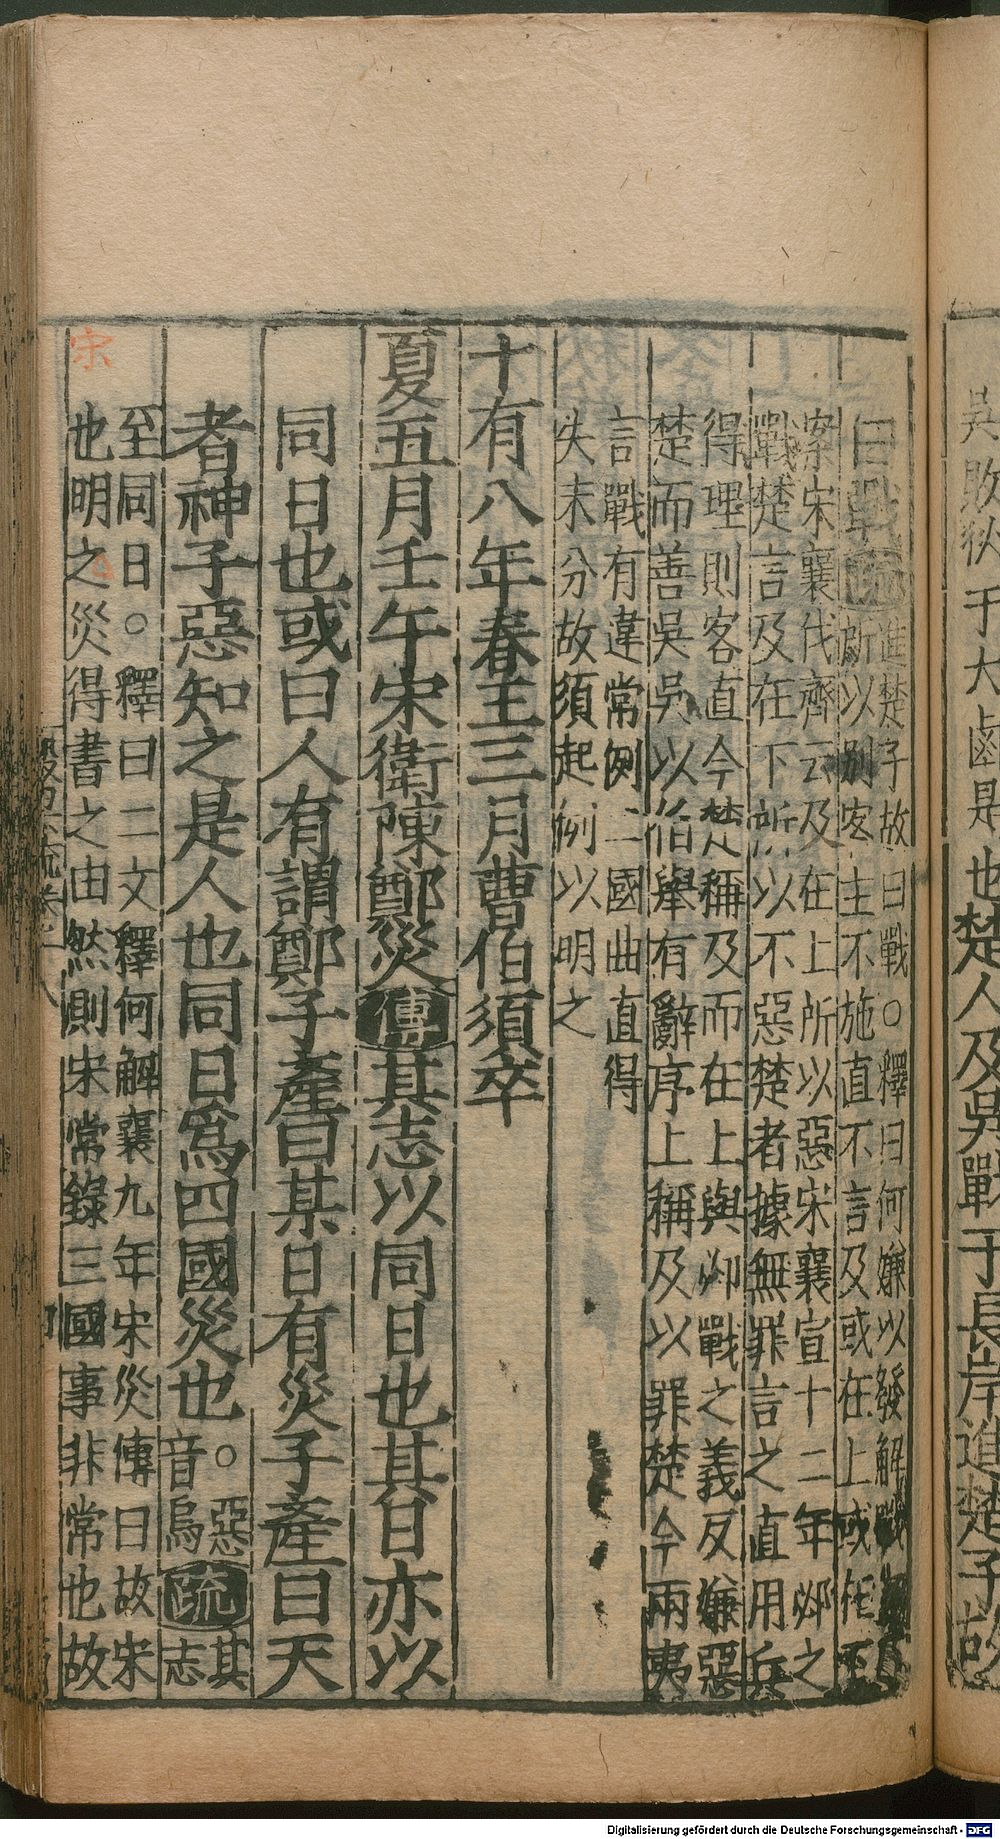 吳敗狄于大鹵是也楚人及吳戰于長岸進楚子故
曰戰疏進楚子故曰戰○釋曰何嫌以發解戰
所以別客主不施直不言及或在上或在下
案宋襄伐齊云及在上所以惡宋襄宣十二年邲之
戰楚言及在下所以不惡楚者據無罪言之直用兵
得理則客直今楚稱及而在上與邲戰之義反嫌惡
楚而善吳吳以伯舉有辭序上稱及以罪楚今兩夷
言戰有違常例二國曲直得
失未分故須起例以明之
十有八年春王三月曹伯須卒
夏五月壬午宋衛陳鄭災傳其志以同日也其日亦以
同日也或曰人有謂鄭子產曰某日有災子產曰天
者神子惡知之是人也同日為四國災也○惡
音烏疏其
志
至同日○釋曰二文釋何解襄九年宋災傳曰故宋
也明之災得書之由然則宋常錄三國事非常也故
宋
Digitalisierung gefördert durch die Deutsche Forschungsgemeinschaft - DFG